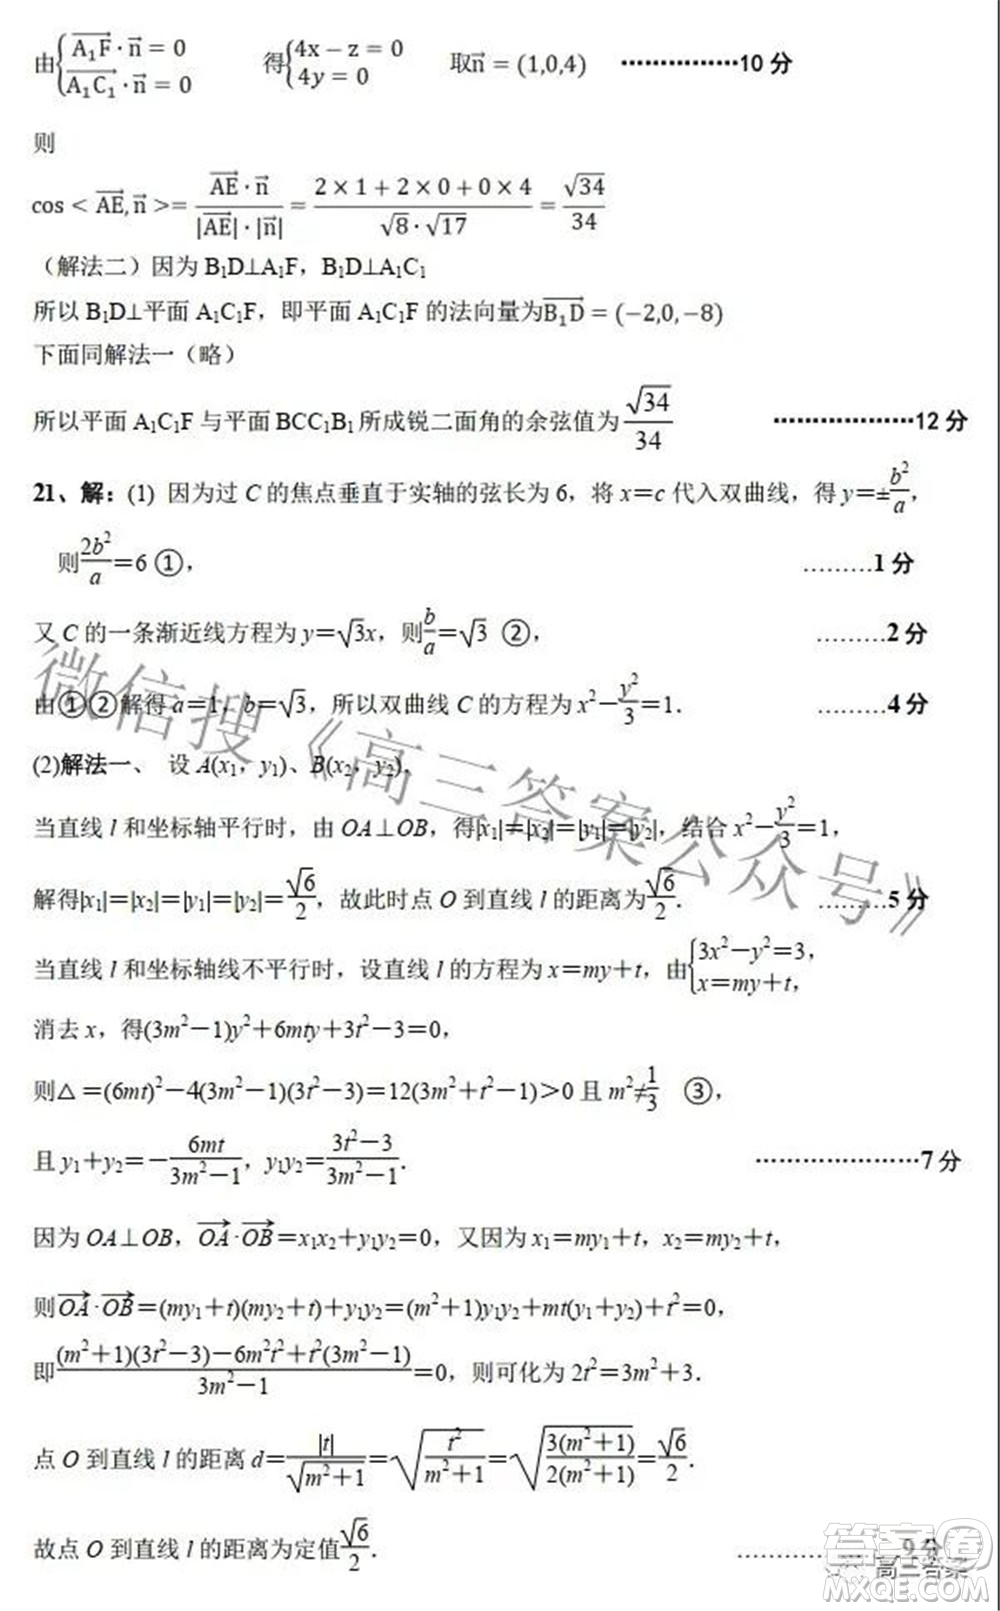 由{A₁F⃗·n⃗=0 得{4x−z=0 取n⃗=(1,0,4) ……………10 分
{A₁C₁⃗·n⃗=0 {4y=0
则
cos<AE⃗,n⃗>=AE⃗·n⃗/|AE⃗|·|n⃗|=2×1+2×0+0×4/√8·√17=√34/34
（解法二）因为 B₁D⊥A₁F，B₁D⊥A₁C₁
所以 B₁D⊥平面 A₁C₁F，即平面 A₁C₁F 的法向量为B₁D⃗=(−2,0,−8)
下面同解法一（略）
所以平面 A₁C₁F 与平面 BCC₁B₁ 所成锐二面角的余弦值为√34/34 ………………12 分
21、解：(1) 因为过 C 的焦点垂直于实轴的弦长为 6，将 x=c 代入双曲线，得 y=±b²/a，
则2b²/a=6 ①， ………1 分
又 C 的一条渐近线方程为 y=√3x，则b/a=√3 ②， ………2 分
由①②解得 a=1，b=√3，所以双曲线 C 的方程为 x²−y²/3=1． ………4 分
(2)解法一、 设 A(x₁，y₁)、B(x₂，y₂)．
当直线 l 和坐标轴平行时，由 OA⊥OB，得|x₁|=|x₂|=|y₁|=|y₂|，结合 x²−y²/3=1，
解得|x₁|=|x₂|=|y₁|=|y₂|=√6/2，故此时点 O 到直线 l 的距离为√6/2． ………5 分
当直线 l 和坐标轴线不平行时，设直线 l 的方程为 x=my+t，由{3x²−y²=3，
{x=my+t，
消去 x，得(3m²−1)y²+6mty+3t²−3=0，
则△=(6mt)²−4(3m²−1)(3t²−3)=12(3m²+t²−1)>0 且 m²≠1/3 ③，
且 y₁+y₂=−6mt/3m²−1，y₁y₂=3t²−3/3m²−1． …………………7 分
因为 OA⊥OB，OA⃗·OB⃗=x₁x₂+y₁y₂=0，又因为 x₁=my₁+t，x₂=my₂+t，
则OA⃗·OB⃗=(my₁+t)(my₂+t)+y₁y₂=(m²+1)y₁y₂+mt(y₁+y₂)+t²=0，
即(m²+1)(3t²−3)−6m²t²+t²(3m²−1)/3m²−1=0，则可化为 2t²=3m²+3．
点 O 到直线 l 的距离 d=|t|/√m²+1=√t²/m²+1=√3(m²+1)/2(m²+1)=√6/2．
故点 O 到直线 l 的距离为定值√6/2． ……………9 分
微信搜《高三答案公众号》
高三答案
答案圈
MXQE.COM